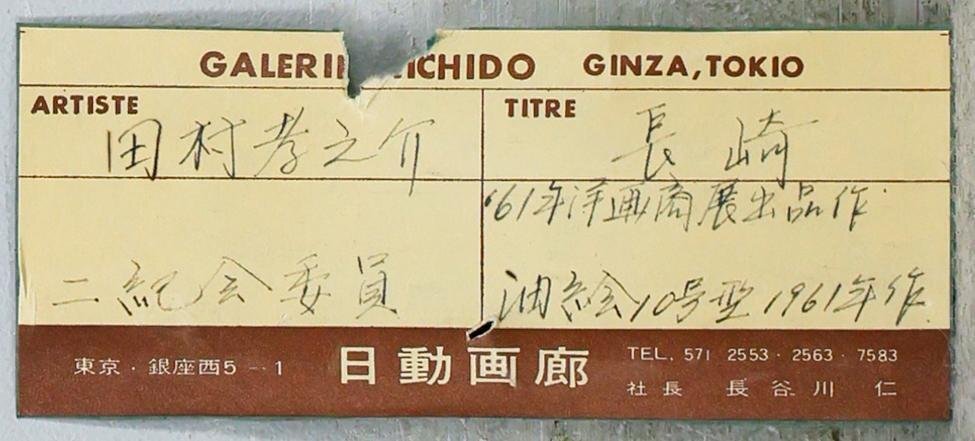 GALERIE NICHIDO GINZA, TOKIO
ARTISTE
田村孝之介
TITRE
長崎
'61年洋画商展出品作
二紀会委員
油絵10号型 1961年作
東京・銀座西5-1
日動画廊
TEL. 571 2553・2563・7583
社長 長谷川 仁